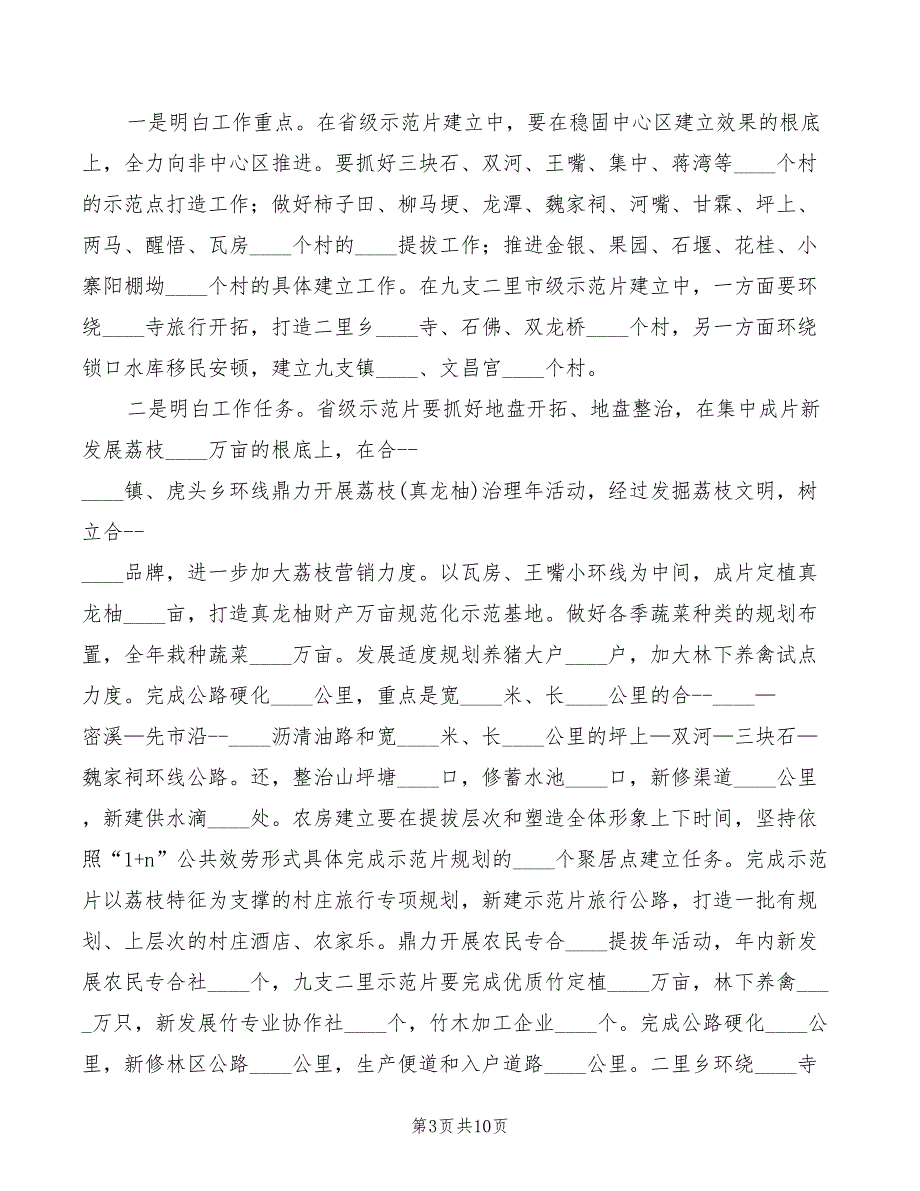 一是明白工作重点。在省级示范片建立中，要在稳固中心区建立效果的根底
上，全力向非中心区推进。要抓好三块石、双河、王嘴、集中、蒋湾等____个村
的示范点打造工作；做好柿子田、柳马埂、龙潭、魏家祠、河嘴、甘霖、坪上、
两马、醒悟、瓦房____个村的____提拔工作；推进金银、果园、石堰、花桂、小
寨阳棚坳____个村的具体建立工作。在九支二里市级示范片建立中，一方面要环
绕____寺旅行开拓，打造二里乡____寺、石佛、双龙桥____个村，另一方面环绕
锁口水库移民安顿，建立九支镇____、文昌宫____个村。
二是明白工作任务。省级示范片要抓好地盘开拓、地盘整治，在集中成片新
发展荔枝____万亩的根底上，在合--
____镇、虎头乡环线鼎力开展荔枝(真龙柚)治理年活动，经过发掘荔枝文明，树
立合--
____品牌，进一步加大荔枝营销力度。以瓦房、王嘴小环线为中间，成片定植真
龙柚____亩，打造真龙柚财产万亩规范化示范基地。做好各季蔬菜种类的规划布
置，全年栽种蔬菜____万亩。发展适度规划养猪大户____户，加大林下养禽试点
力度。完成公路硬化____公里，重点是宽____米、长____公里的合--____—
密溪—先市沿--____沥清油路和宽____米、长____公里的坪上—双河—三块石—
魏家祠环线公路。还，整治山坪塘____口，修蓄水池____口，新修渠道____公里
，新建供水滴____处。农房建立要在提拔层次和塑造全体形象上下时间，坚持依
照“1+n”公共效劳形式具体完成示范片规划的____个聚居点建立任务。完成示范
片以荔枝特征为支撑的村庄旅行专项规划，新建示范片旅行公路，打造一批有规
划、上层次的村庄酒店、农家乐。鼎力开展农民专合____提拔年活动，年内新发
展农民专合社____个，九支二里示范片要完成优质竹定植____万亩，林下养禽___
_万只，新发展竹专业协作社____个，竹木加工企业____个。完成公路硬化____公
里，新修林区公路____公里，生产便道和入户道路____公里。二里乡环绕____寺
第3页共10页